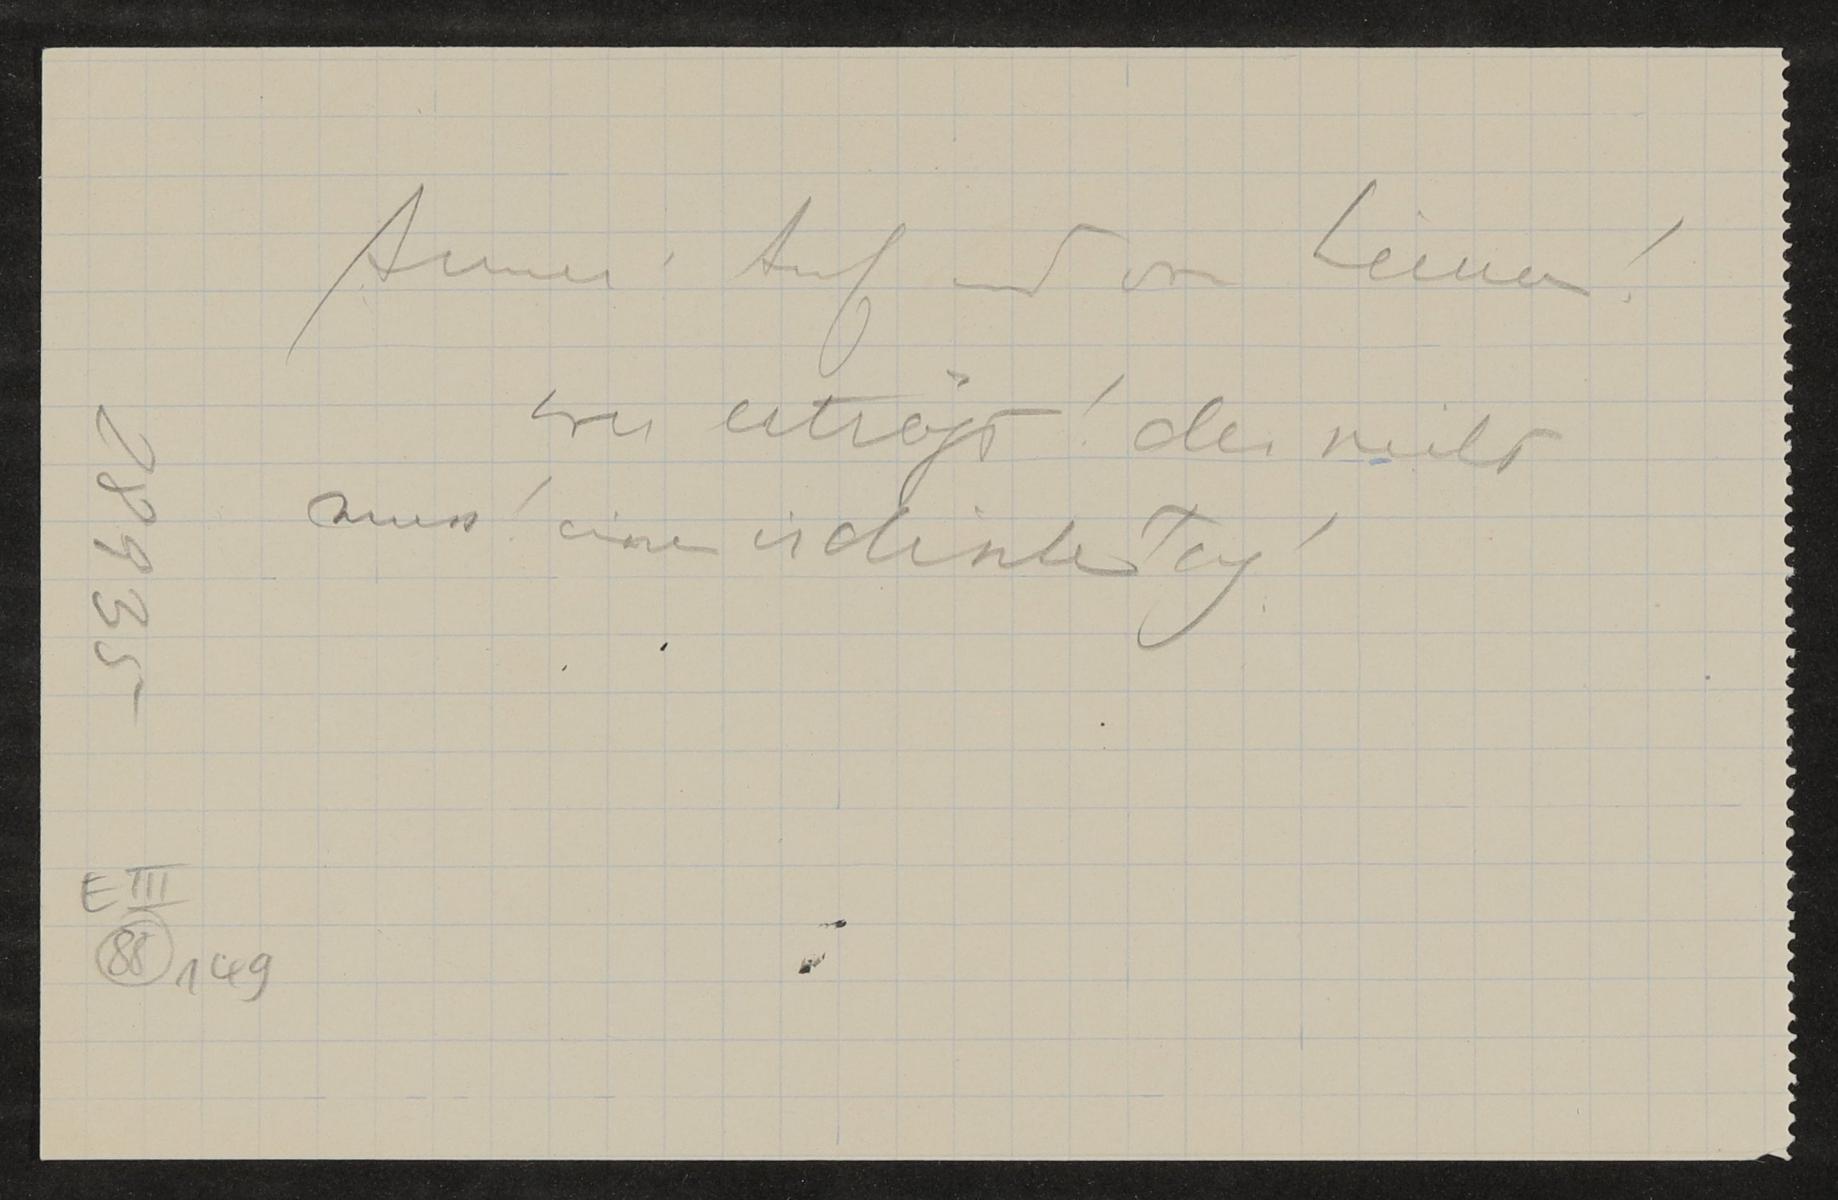 Armer! Auf und von Leinen!
wer erträgt! der nicht
muss! einen irdischen Tag!
28935
E III
88 149